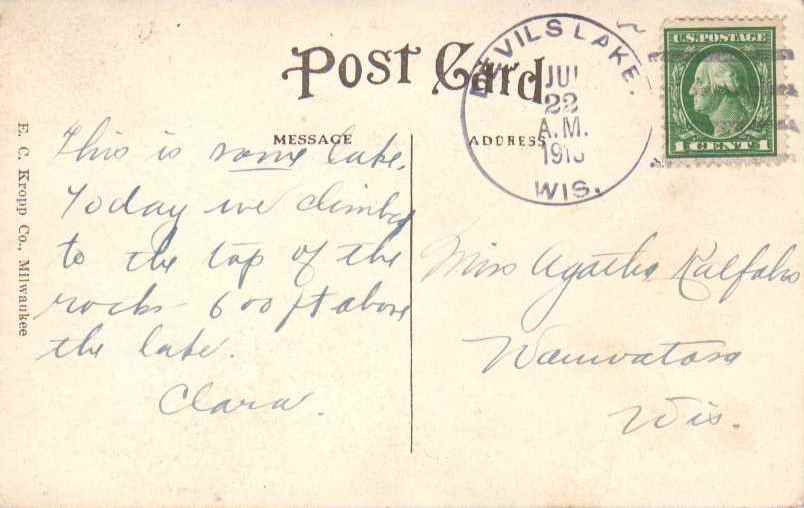 Post Card
DEVILS LAKE.
JUL
22
A.M.
WIS.
U.S. POSTAGE
1 CENT 1
MESSAGE
ADDRESS
E. C. Kropp Co., Milwaukee
This is some lake.
Today we climbed
to the top of the
rocks - 600 ft above
the lake.
Clara.
Miss Agatha
Wauwatosa
Wis.